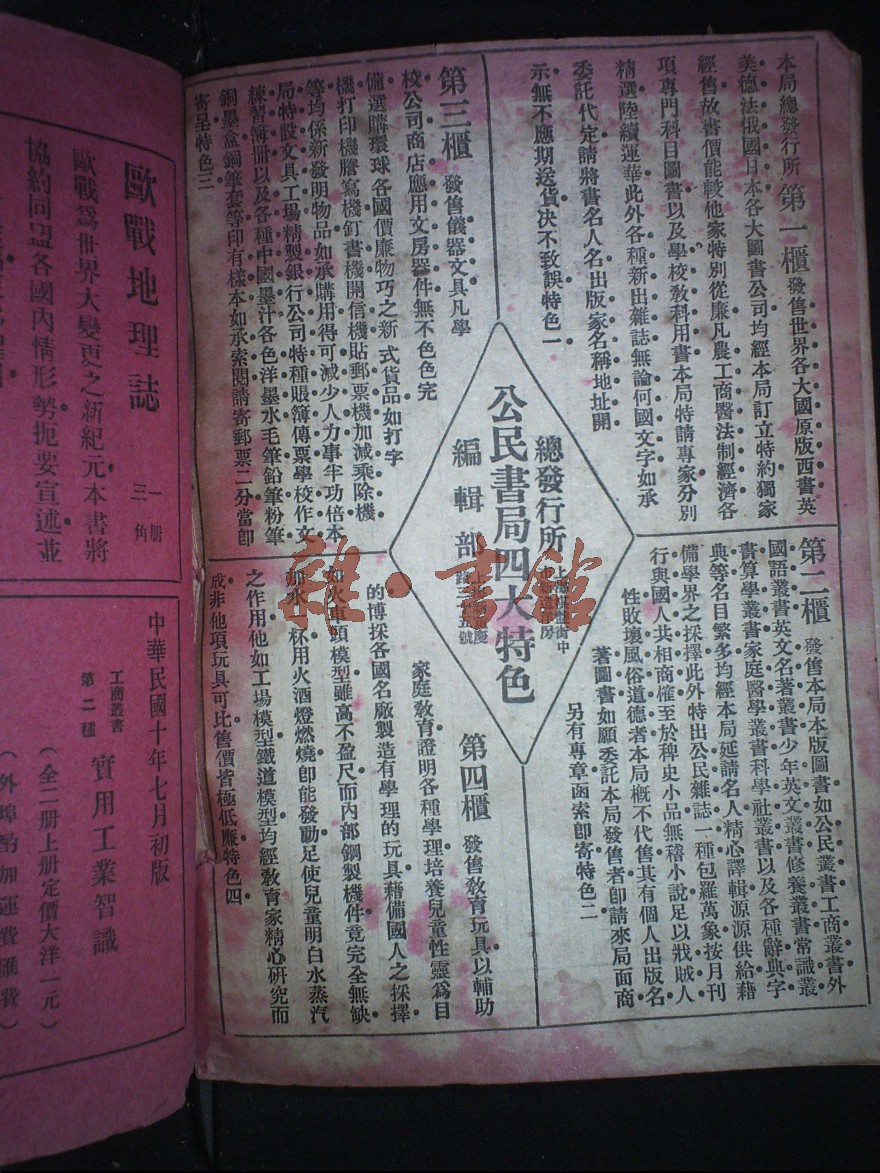 公民書局四大特色
總發行所
編輯部
本局總發行所第一櫃發售世界各大國原版西書英
美德法俄國日本各大圖書公司均經本局訂立特約獨家
經售故書價能較他家特別從廉凡農工商醫法制經濟各
項專門科目圖書以及學校教科用書本局特請專家分別
精選陸續運華此外各種新出雜誌無論何國文字如承
委託代定請將書名人名出版家名稱地址開
示無不應期送貨决不致誤特色一
第二櫃發售本局本版圖書如公民叢書工商叢書外
國語叢書英文名著叢書少年英文叢書修養叢書常識叢
書算學叢書家庭醫學叢書科學社叢書以及各種辭典字
典等名目繁多均經本局延請名人精心譯輯源源供給藉
備學界之採擇此外特出公民雜誌一種包羅萬象按月刊
行與國人共相商榷至於稗史小品無稽小說足以戕賊人
性敗壞風俗道德者本局概不代售其有個人出版名
著圖書如願委託本局發售者卽請來局面商
另有專章函索卽寄特色二
第三櫃發售儀器文具凡學
校公司商店應用文房器件無不色色完
備選購環球各國價廉物巧之新式貨品如打字
機打印機謄寫機釘書機開信機貼郵票機加減乘除機
等均係新發明物品如承購用得可減少人力事半功倍本
局特設文具工場精製銀行公司特種賬簿傳票學校作文
練習簿册以及各種中國墨汁各色洋墨水毛筆鉛筆粉筆
銅墨盒銅筆套等印有樣本如承索閱請寄郵票二分當卽
寄呈特色三
第四櫃發售敎育玩具以輔助
家庭敎育證明各種學理培養兒童性靈爲目
的博採各國名廠製造有學理的玩具藉備國人之採擇
如火車頭模型雖高不盈尺而內部鋼製機件竟完全無缺
加水一杯用火酒燈燃燒卽能發動足使兒童明白水蒸汽
之作用他如工場模型鐵道模型均經敎育家精心研究而
成非他項玩具可比售價皆極低廉特色四
歐戰地理誌
一册
三角
歐戰爲世界大變更之新紀元本書將
協約同盟各國內情形勢扼要宣述並
中華民國十年七月初版
工商叢書
第二種
實用工業智識
(全二册上册定價大洋一元)
(外埠酌加運費匯費)
雜·書館